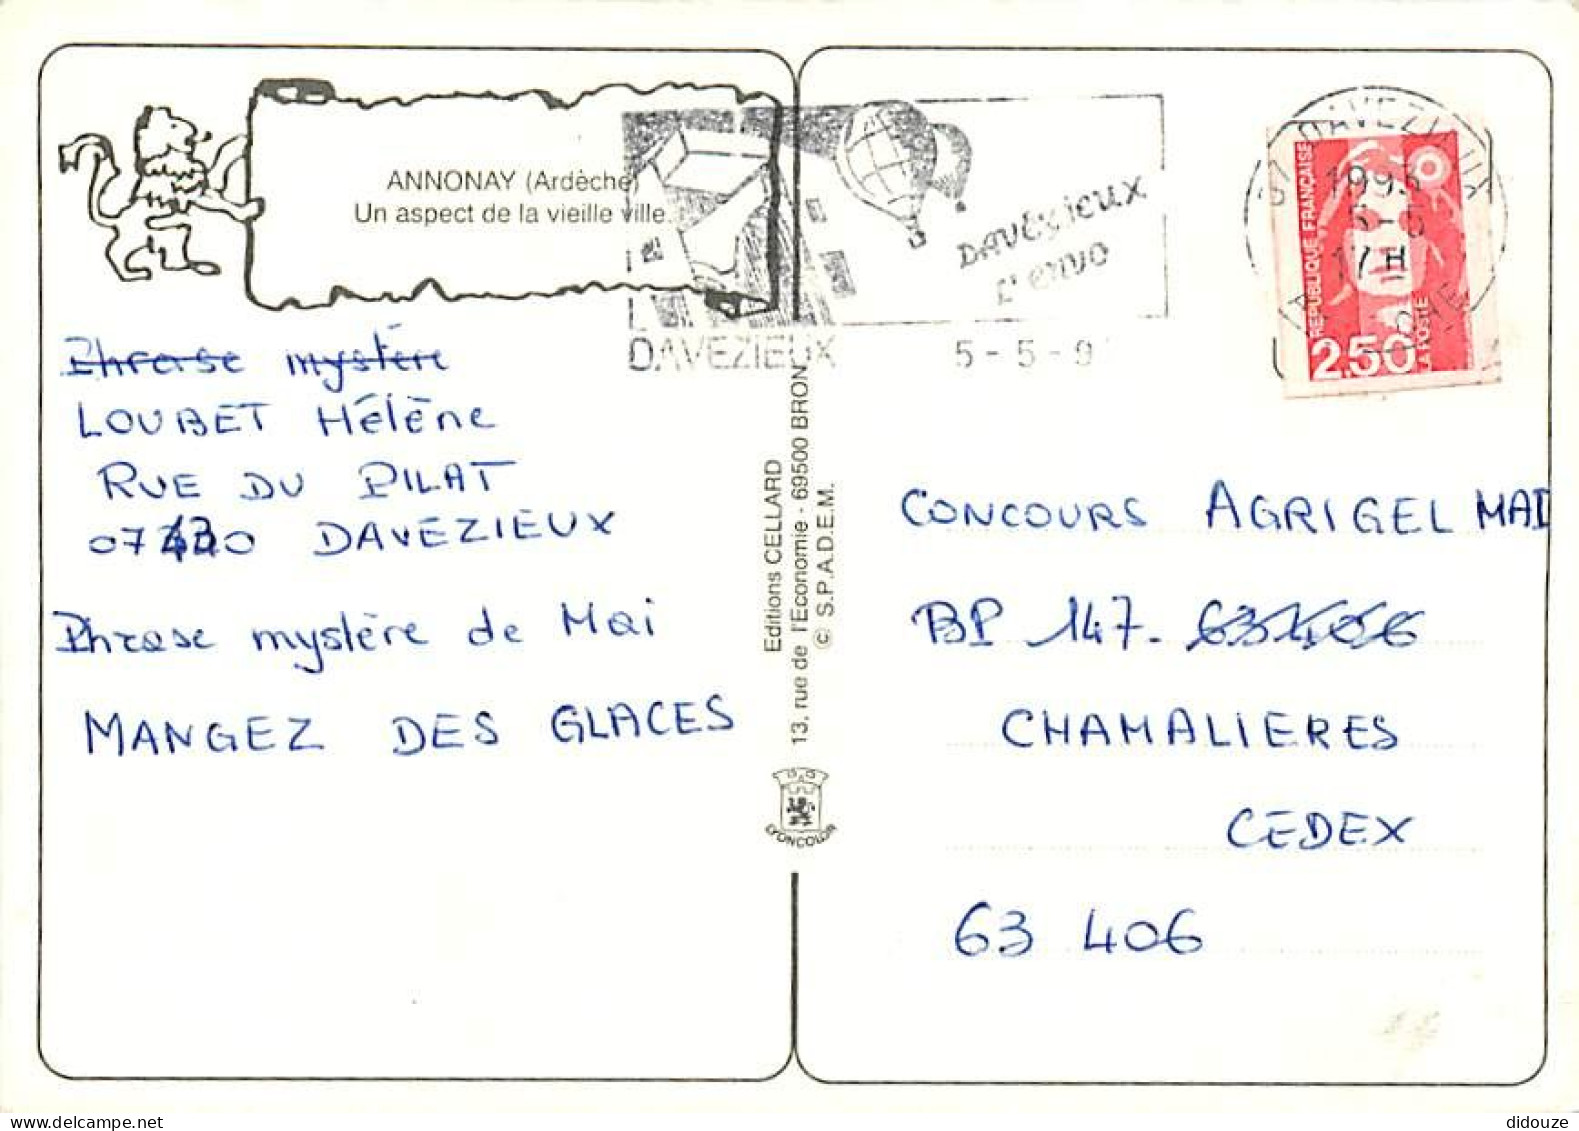 ANNONAY (Ardèche)
Un aspect de la vieille ville.
DAVÉZIEUX
DAVEZIEUX
5-5-9
DAVEZIEUX
1993
5-5
17H
ARDECHE
RÉPUBLIQUE FRANÇAISE
2,50
LA POSTE
Phrase mystère
LOUBET Hélène
RUE DU PILAT
DAVEZIEUX
Phrase mystère de Mai
MANGEZ DES GLACES
Editions CELLARD
13, rue de l'Economie - 69500 BRON
© S.P.A.D.E.M.
LYONCOLOR
CONCOURS AGRIGEL MAI
BP 147. 63406
CHAMALIERES
CEDEX
63 406
delcampe.net
didouze